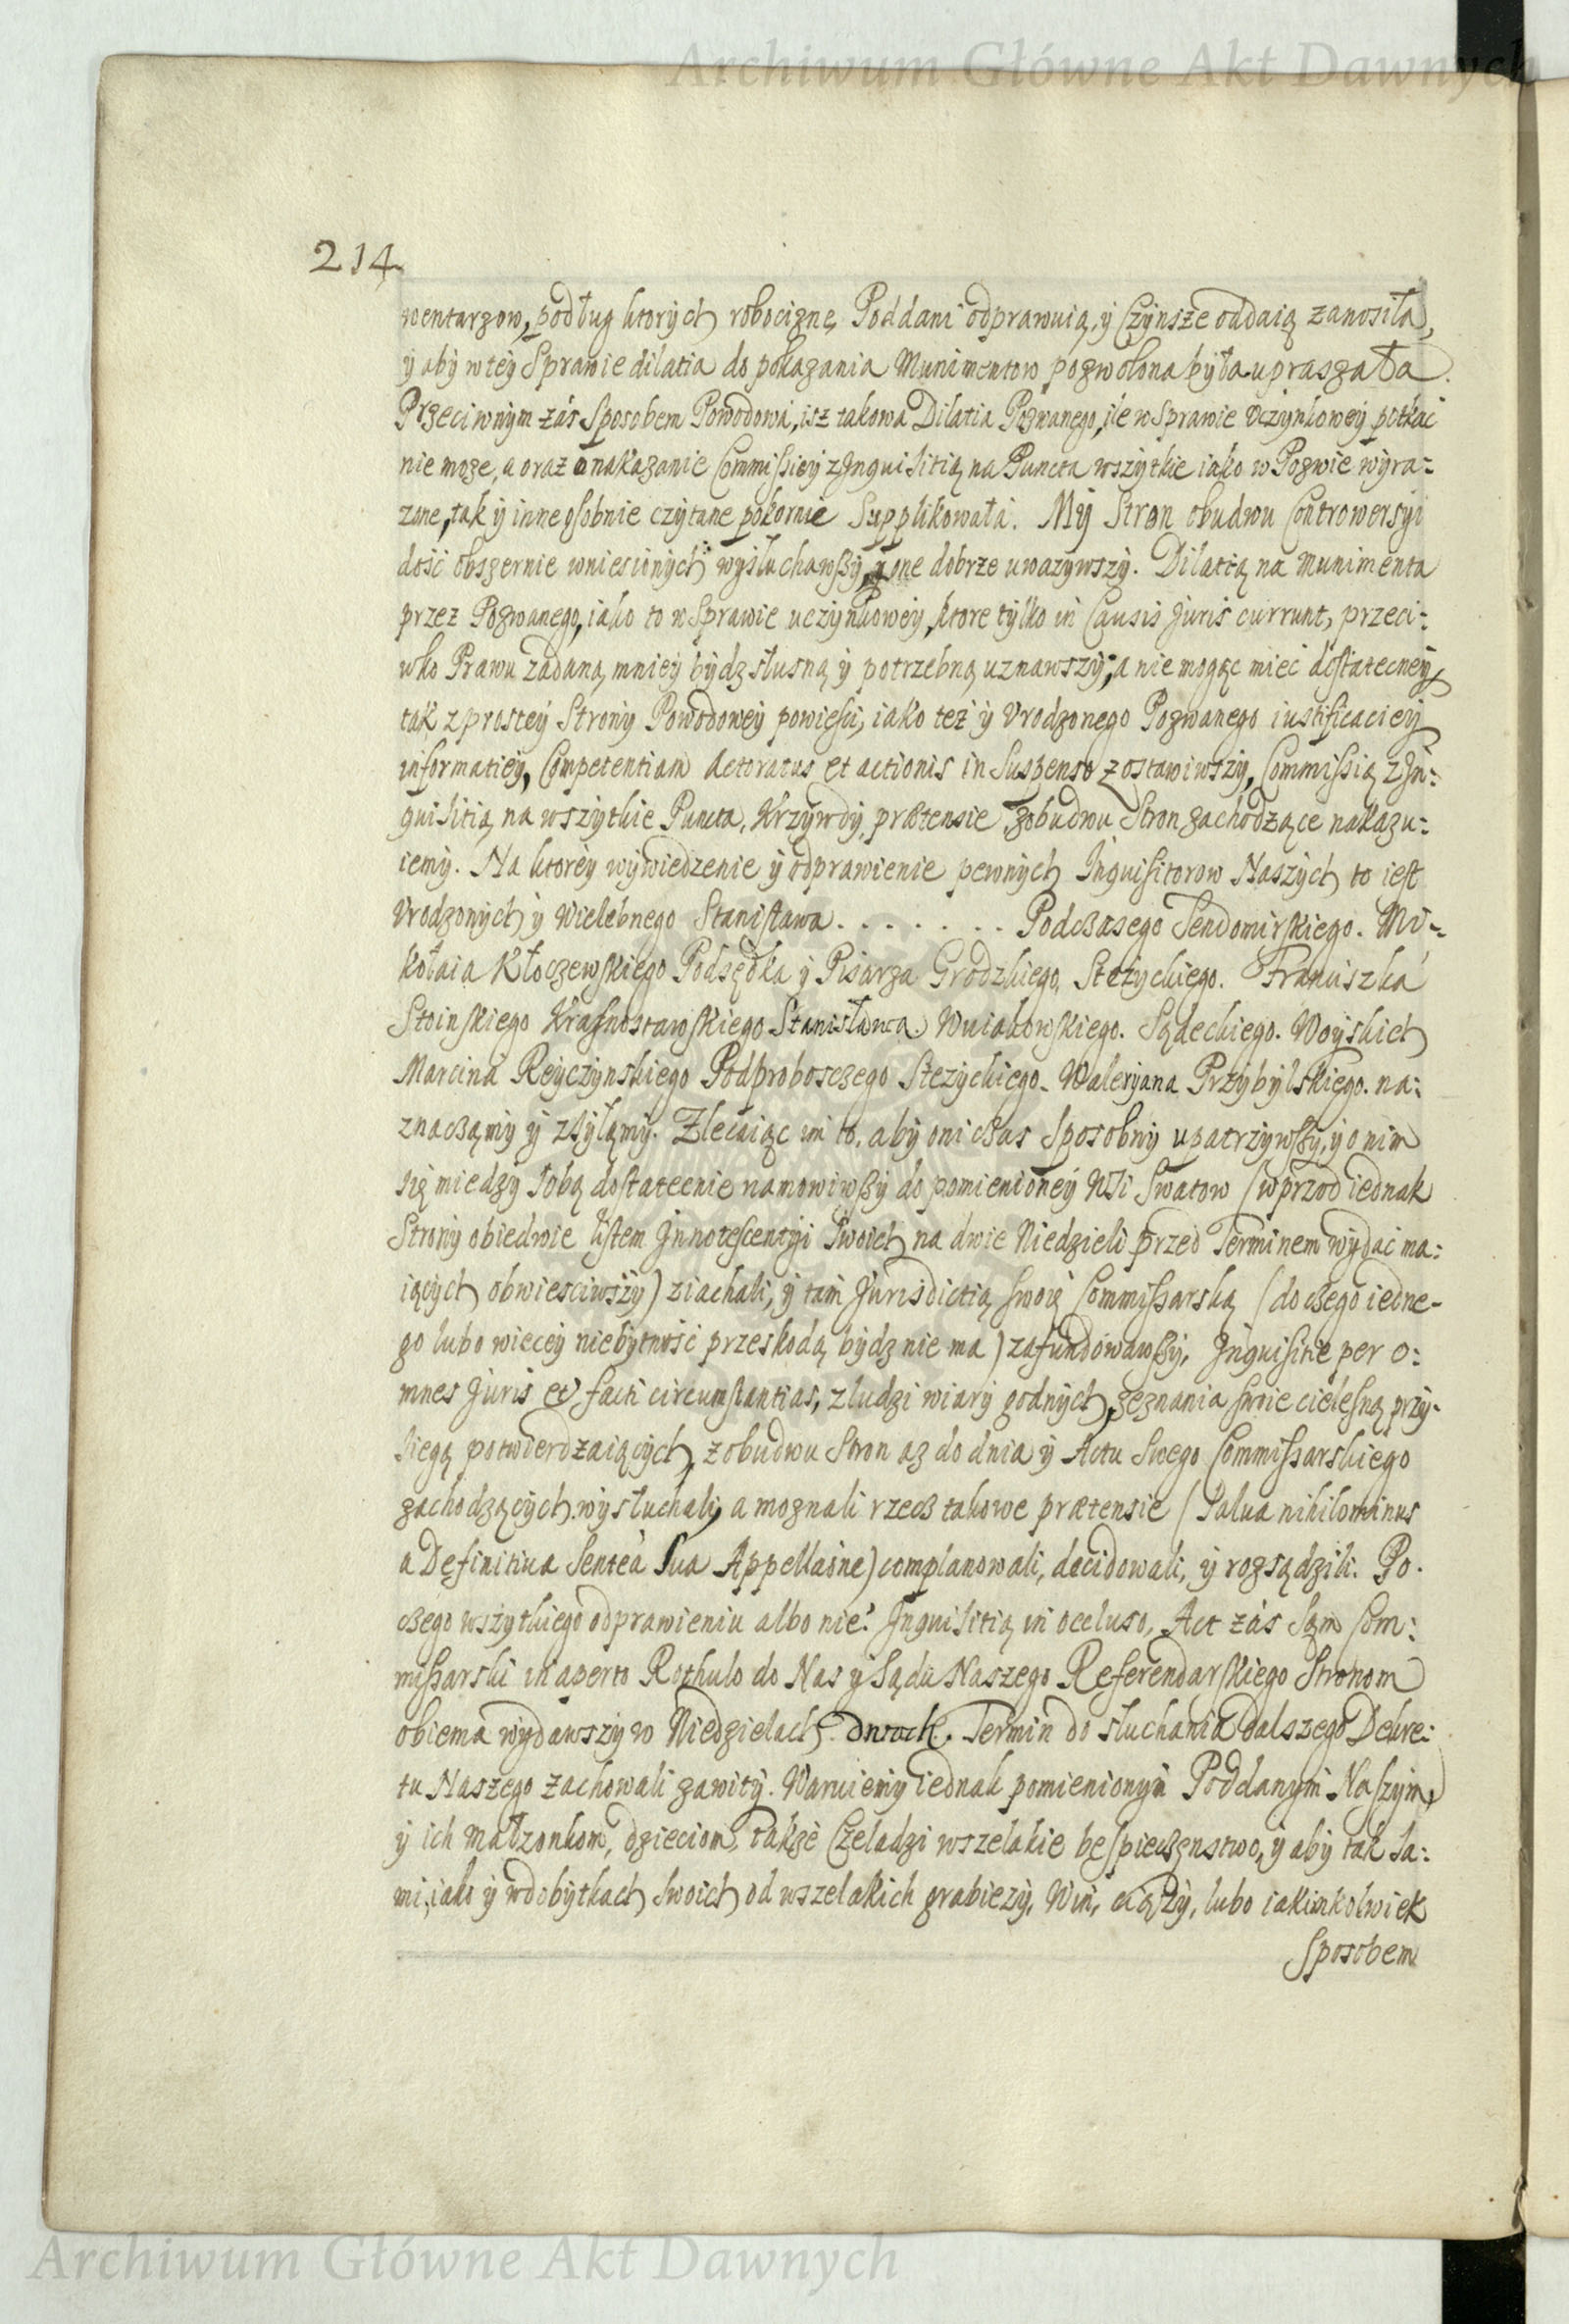 Archiwum Główne Akt Dawnych
214
wentarzow, podług ktorych robociznę Poddani odprawuią, y Czynsze oddaią zanosiła,
y aby w tey Sprawie dilatia do pokazania Munimentow pozwolona była upraszała.
Przeciwnym zás Sposobem Powodowá, isz takowa Dilatia Pozwanego, ile w Sprawie Uczynkowey potkać
nie moze, a oraz o nakazanie Commissiey z Inquisitią na Puncta wszytkie iako w Pozwie wyra:
zone, tak y inne osobnie czytane pokornie Supplikowałá. My Stron obudwu Controwersyi
dość obszernie wniesionych wysłuchawszy, y one dobrze uwazywszy. Dilatią na Munimenta
przez Pozwanego, iako to w Sprawie uczynkowey, ktore tylko in Causis Juris currunt, przeci:
wko Prawu zadaną, mniey bydz słusną y potrzebną uznawszy, a nie mogąc mieć dostatecney
tak z prostey Strony Powodowey powieści, iako tez y Vrodzonego Pozwanego iustificaciey
informatiey, Competentiam Actoratus et actionis in Suspenso zostawiwszy, Commissią z In:
quisitią na wszytkie Puncta, Krzywdy, prætensie, z obudwu Stron zachodzące nakazu:
iemy. Na ktorey wywiedzenie y odprawienie pewnych Inquisitorow Naszych to iest
Vrodzonych y Wielebnego Stanisława . . . . . . . Podczasego Sendomirskiego. Mi-
kołaia Kłoczewskiego Podsędka y Pisarza Grodzkiego, Stezyckiego. Franciszka
Stoinskiego Krasnostawskiego Stanisława Wuiakowskiego. Sądeckiego. Woyskich
Marcina Reyczynskiego Podproboszczego Stezyckiego. Waleryana Przybylskiego. na:
znaczamy y zsyłamy. Zlecaiąc im to, aby oni czas Sposobny upatrzywszy, y o nim
się miedzy sobą dostatecnie namowiwszy do pomienioney Wsi Swatow (wprzod iednak
Strony obiedwie listem Innotescentyi Swoich na dwie Niedzieli przed Terminem wydać ma:
iących obwiesciwszy) ziachali, y tam Jurisdictią swoią Commissarską (do czego iedne-
go lubo wiecey niebytność przeskodą bydz nie ma) zafundowawszy, Inquisitie per o:
mnes Juris et facti circumstantias, z ludzi wiary godnych, zeznania swie cielesną przy-
sięgą potwierdzaiących, z obudwu Stron az do dnia y Actu Swego Commissarskiego
zachodzących wysłuchali, a moznali rzecz takowe prætensie (Salua nihilominus
a Definitiua Sentea Sua Appellaone) complanowali, decidowali, y rozsądzili. Po.
czego wszytkiego odprawieniu albo nie: Inquisitią in occluso, Act zás Sąm Com:
missarski in aperto Rothulo do Nas y Sądu Naszego Referendarskiego Stronom
obiema wydawszy w Niedzielach dwoch. Termin do słuchania dalszego Dekre:
tu Naszego zachowali zawity. Waruiemy iednak pomienionym Poddanym Naszym,
y ich małzonkom, dzieciom, takze Czeladzi wszelakie bespieczenstwo, y aby tak sa:
mi, iako y w dobytkach swoich od wszelakich grabiezy, Win, ciązy, lubo iakimkolwiek
Sposobem
Archiwum Główne Akt Dawnych